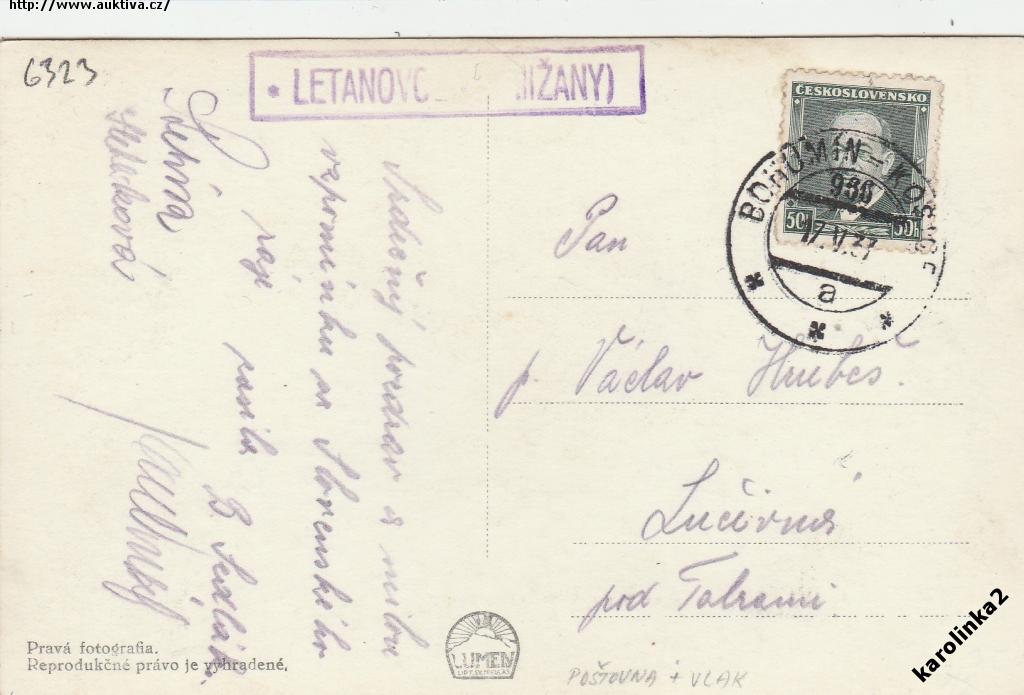 http://www.auktiva.cz/
6323
• LETANOVC IŽANY)
ČESKOSLOVENSKO
50h 50h
BOHUMÍN – KO
986
17.V.37
a
Srdečný pozdrav a milou
vzpomínku ze Slovenského
ráje
B. Sedlák
Pan
p. Václav Hrubeš.
Lučivná
pod Tatrami
Pravá fotografia.
Reprodukčné právo je vyhradené.
LUMEN
POŠTOVNA + VLAK
karolinka2